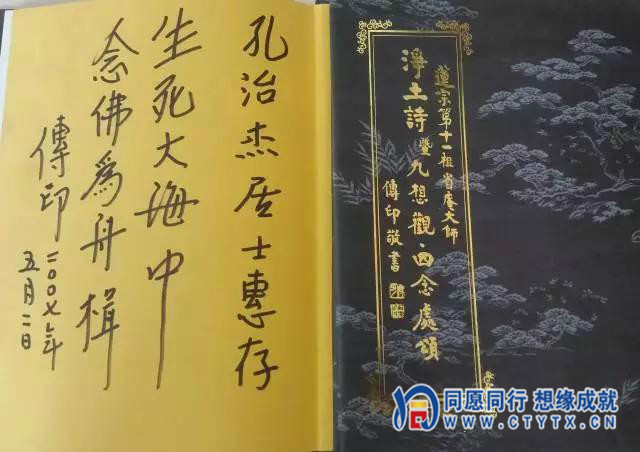 孔治杰居士惠存
生死大海中
念佛為舟楫
傳印
二００七年
五月二日
蓮宗第十一祖省庵大师
淨土詩暨九想觀·四念處頌
傳印敬書
同愿同行 想缘成就
WWW.CTYTX.CN